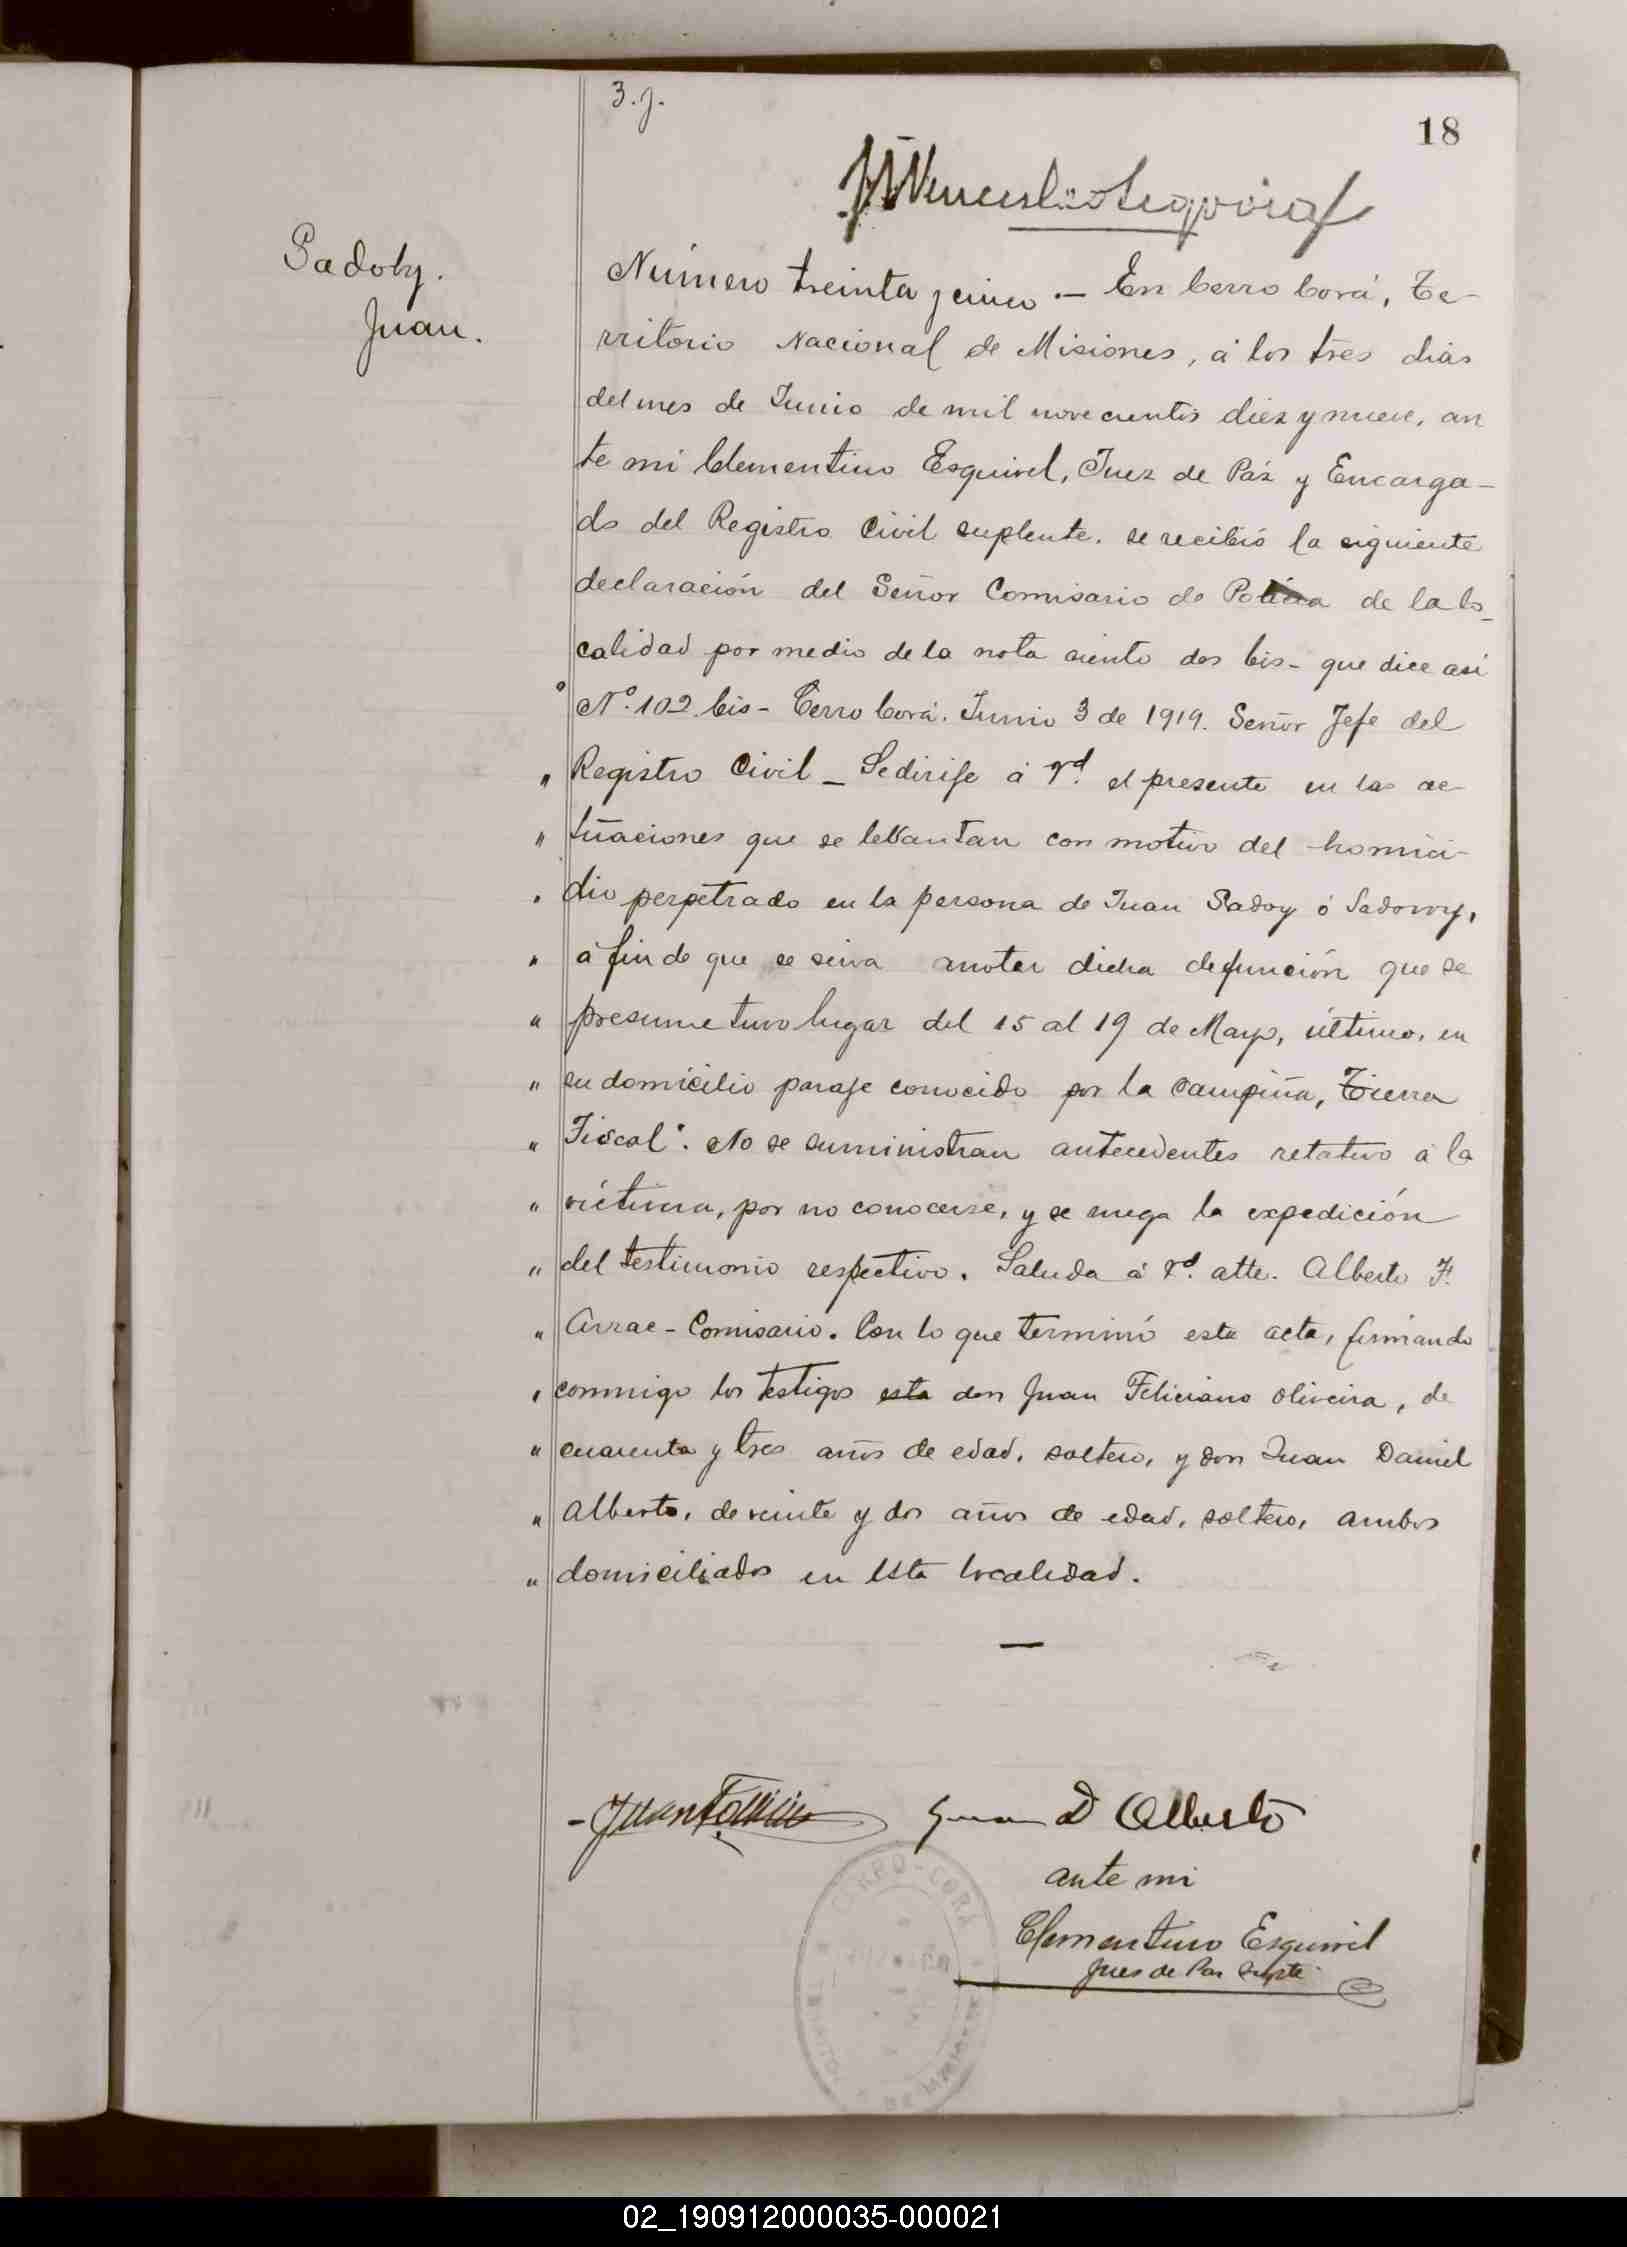 3. j.
18
Sadoby.
Juan.
Número treinta y cinco. — En Cerro Corá, Te-
rritorio Nacional de Misiones, á los tres dias
del mes de Junio de mil novecientos diez y nueve, an
te mi Clementino Esquivel, Juez de Páz y Encarga-
do del Registro Civil suplente. se recibió la siguiente
declaración del Señor Comisario de Policia de la lo-
calidad por medio de la nota ciento dos bis- que dice asi
" Nº. 102 bis- Cerro Corá. Junio 3 de 1919. Señor Jefe del
" Registro Civil _ Se dirije á Vd. el presente en las ac-
" tuaciones que se levantan con motivo del homici-
" dio perpetrado en la persona de Juan Sadoy ó Sadovy,
" á fin de que se sirva anotar dicha defunción que se
" presume tuvo lugar del 15 al 19 de Mayo, último, en
" su domicilio paraje conocido por la Campiña, Tierra
" Fiscal". No se suministran antecedentes retativo á la
" victima, por no conocerse, y se ruega la expedición
" del testimonio respectivo. Saluda á Vd. atte. Alberto F.
" Arrae - Comisario. Con lo que terminó esta acta, firmando
" conmigo los testigos esta don Juan Feliciano Oliveira, de
" cuarenta y tres años de edad, soltero, y don Juan Daniel
" Alberto, de veinte y dos años de edad, soltero, ambos
" domiciliados en esta localidad.
Juan D Alberto
ante mi
Clementino Esquivel
Jues de Pas Suplte
CERRO-CORÁ
DE MISIONES
02_190912000035-000021